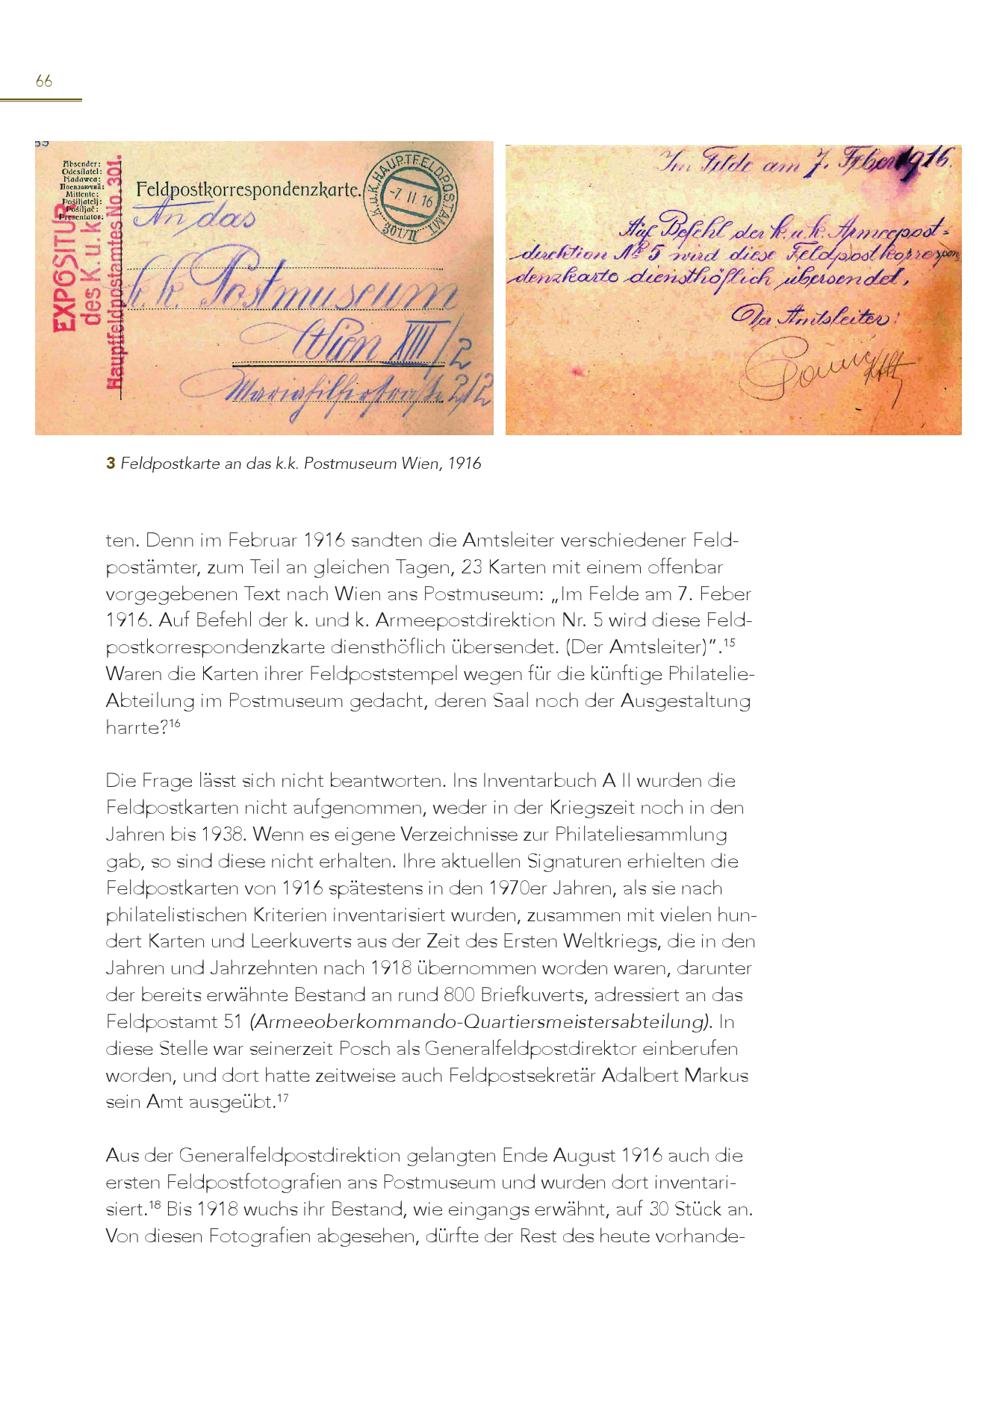 66
59
Absender:
Odesílatel:
Nadawca:
Mittente:
Pošiljatelj:
Pošiljač:
Presentator:
EXPOSITUR
des K. u. k.
Hauptfeldpostamtes No. 301.
Feldpostkorrespondenzkarte.
K.u.K. HAUPTFELDPOSTAMT
-7. II. 16
301/II
An das
k. k. Postmuseum
Wien XIII/2
Mariahilferstraße 212
Im Felde am 7. Feber 1916.
Auf Befehl der k. u. k. Armeepost-
direktion № 5 wird diese Feldpostkorrespon
denzkarte diensthöflich übersendet.
Der Amtsleiter:
3 Feldpostkarte an das k.k. Postmuseum Wien, 1916
ten. Denn im Februar 1916 sandten die Amtsleiter verschiedener Feld-
postämter, zum Teil an gleichen Tagen, 23 Karten mit einem offenbar
vorgegebenen Text nach Wien ans Postmuseum: „Im Felde am 7. Feber
1916. Auf Befehl der k. und k. Armeepostdirektion Nr. 5 wird diese Feld-
postkorrespondenzkarte diensthöflich übersendet. (Der Amtsleiter)".15
Waren die Karten ihrer Feldpoststempel wegen für die künftige Philatelie-
Abteilung im Postmuseum gedacht, deren Saal noch der Ausgestaltung
harrte?16
Die Frage lässt sich nicht beantworten. Ins Inventarbuch A II wurden die
Feldpostkarten nicht aufgenommen, weder in der Kriegszeit noch in den
Jahren bis 1938. Wenn es eigene Verzeichnisse zur Philateliesammlung
gab, so sind diese nicht erhalten. Ihre aktuellen Signaturen erhielten die
Feldpostkarten von 1916 spätestens in den 1970er Jahren, als sie nach
philatelistischen Kriterien inventarisiert wurden, zusammen mit vielen hun-
dert Karten und Leerkuverts aus der Zeit des Ersten Weltkriegs, die in den
Jahren und Jahrzehnten nach 1918 übernommen worden waren, darunter
der bereits erwähnte Bestand an rund 800 Briefkuverts, adressiert an das
Feldpostamt 51 (Armeeoberkommando-Quartiersmeistersabteilung). In
diese Stelle war seinerzeit Posch als Generalfeldpostdirektor einberufen
worden, und dort hatte zeitweise auch Feldpostsekretär Adalbert Markus
sein Amt ausgeübt.17
Aus der Generalfeldpostdirektion gelangten Ende August 1916 auch die
ersten Feldpostfotografien ans Postmuseum und wurden dort inventari-
siert.18 Bis 1918 wuchs ihr Bestand, wie eingangs erwähnt, auf 30 Stück an.
Von diesen Fotografien abgesehen, dürfte der Rest des heute vorhande-